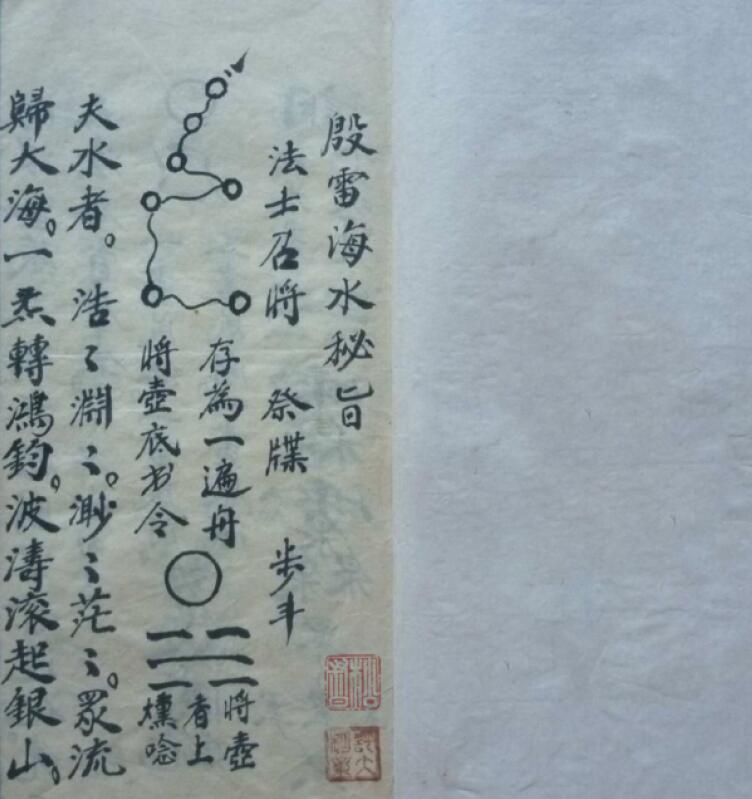 殷雷海水秘旨
法士召將 祭牒 步斗
存為一遍舟
將壺底书令
將壺
香上
燻唸
夫水者。浩〻淵〻。渺〻茫〻。眾流
歸大海。一炁轉鴻鈞。波濤滾起銀山。